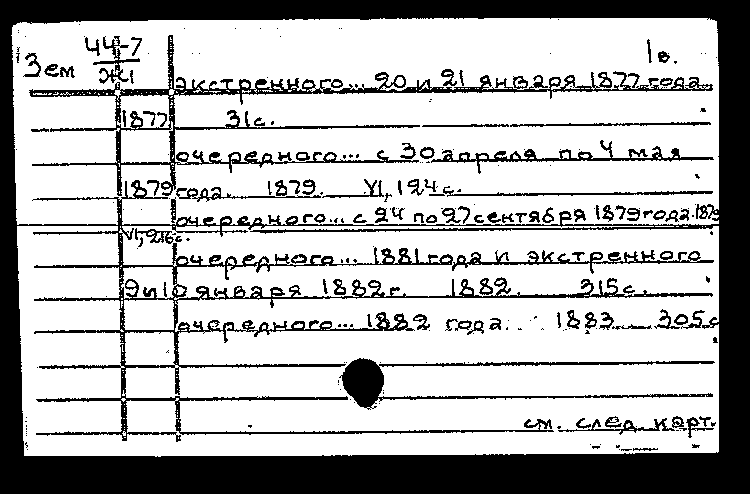 Зем 44-7 1 в.
Ж4
экстренного... 20 и 21 января 1877 года.
1877 31с.
очередного... с 30 апреля по 4 мая
1879 года. 1879. VI, 124 с.
очередного... с 24 по 27 сентября 1879 года. 1879
VI, 216 с.
очередного... 1881 года и экстренного
9 и 10 января 1882 г. 1882. 315 с.
очередного... 1882 года. 1883 305 с
см. след. карт.